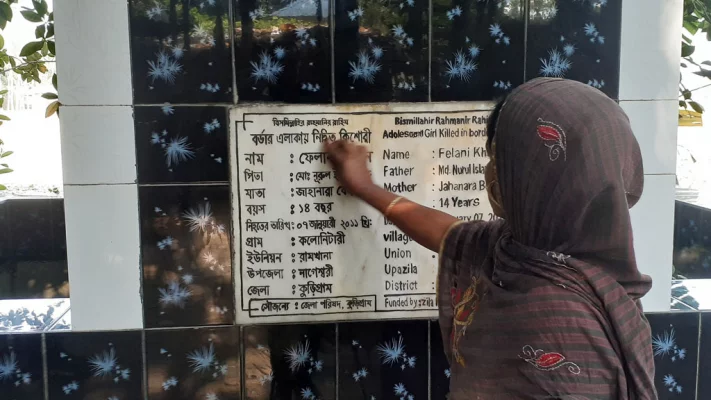 বিসমিল্লাহির রাহমানির রাহিম
বর্ডার এলাকায় নিহত কিশোরী
নাম : ফেলা
পিতা : মোঃ নূরুল
মাতা : জাহানারা
বয়স : ১৪ বছর
নিহতের তারিখ : ০৭ জানুয়ারী ২০১১ খ্রিঃ
গ্রাম : কলোনিটারী
ইউনিয়ন : রামখানা
উপজেলা : নাগেশ্বরী
জেলা : কুড়িগ্রাম
সৌজন্যে : জেলা পরিষদ, কুড়িগ্রাম
Bismillahir Rahmanir Rahi
Adolescent Girl Killed in borde
Name : Felani Kh
Father : Md. Nurul Isla
Mother : Jahanara B
: 14 Years
uary 07, 20
village
Union :
Upazila :
District :
Funded by : Zila